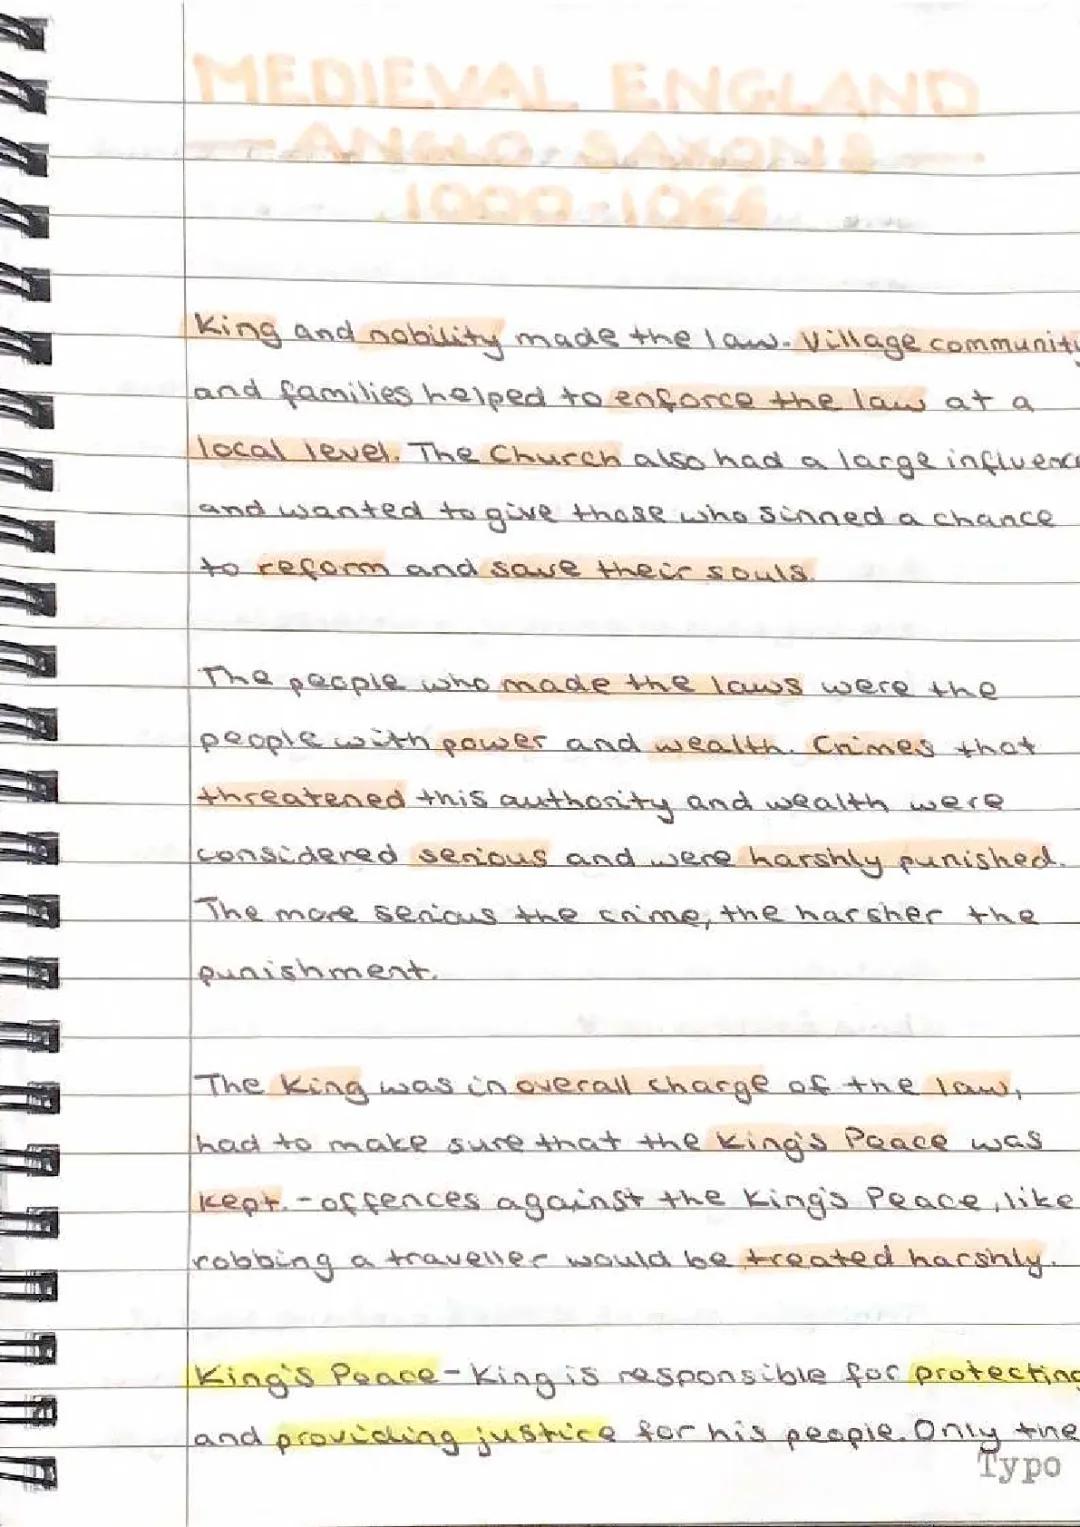 MEDIEVAL ENGLAND
— ANGLO-SAXONS —
1000-1066
King and nobility made the law. Village community
and families helped to enforce the law at a
local level. The Church also had a large influence
and wanted to give those who sinned a chance
to reform and save their souls.
The people who made the laws were the
people with power and wealth. Crimes that
threatened this authority and wealth were
considered serious and were harshly punished.
The more serious the crime, the harsher the
punishment.
The King was in overall charge of the law,
had to make sure that the King's Peace was
kept. - offences against the King's Peace, like
robbing a traveller would be treated harshly.
King's Peace - King is responsible for protecting
and providing justice for his people. Only the
Typo